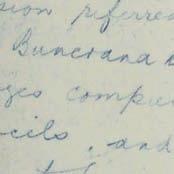 sion referre
Buncrana
ges compri
cils, and